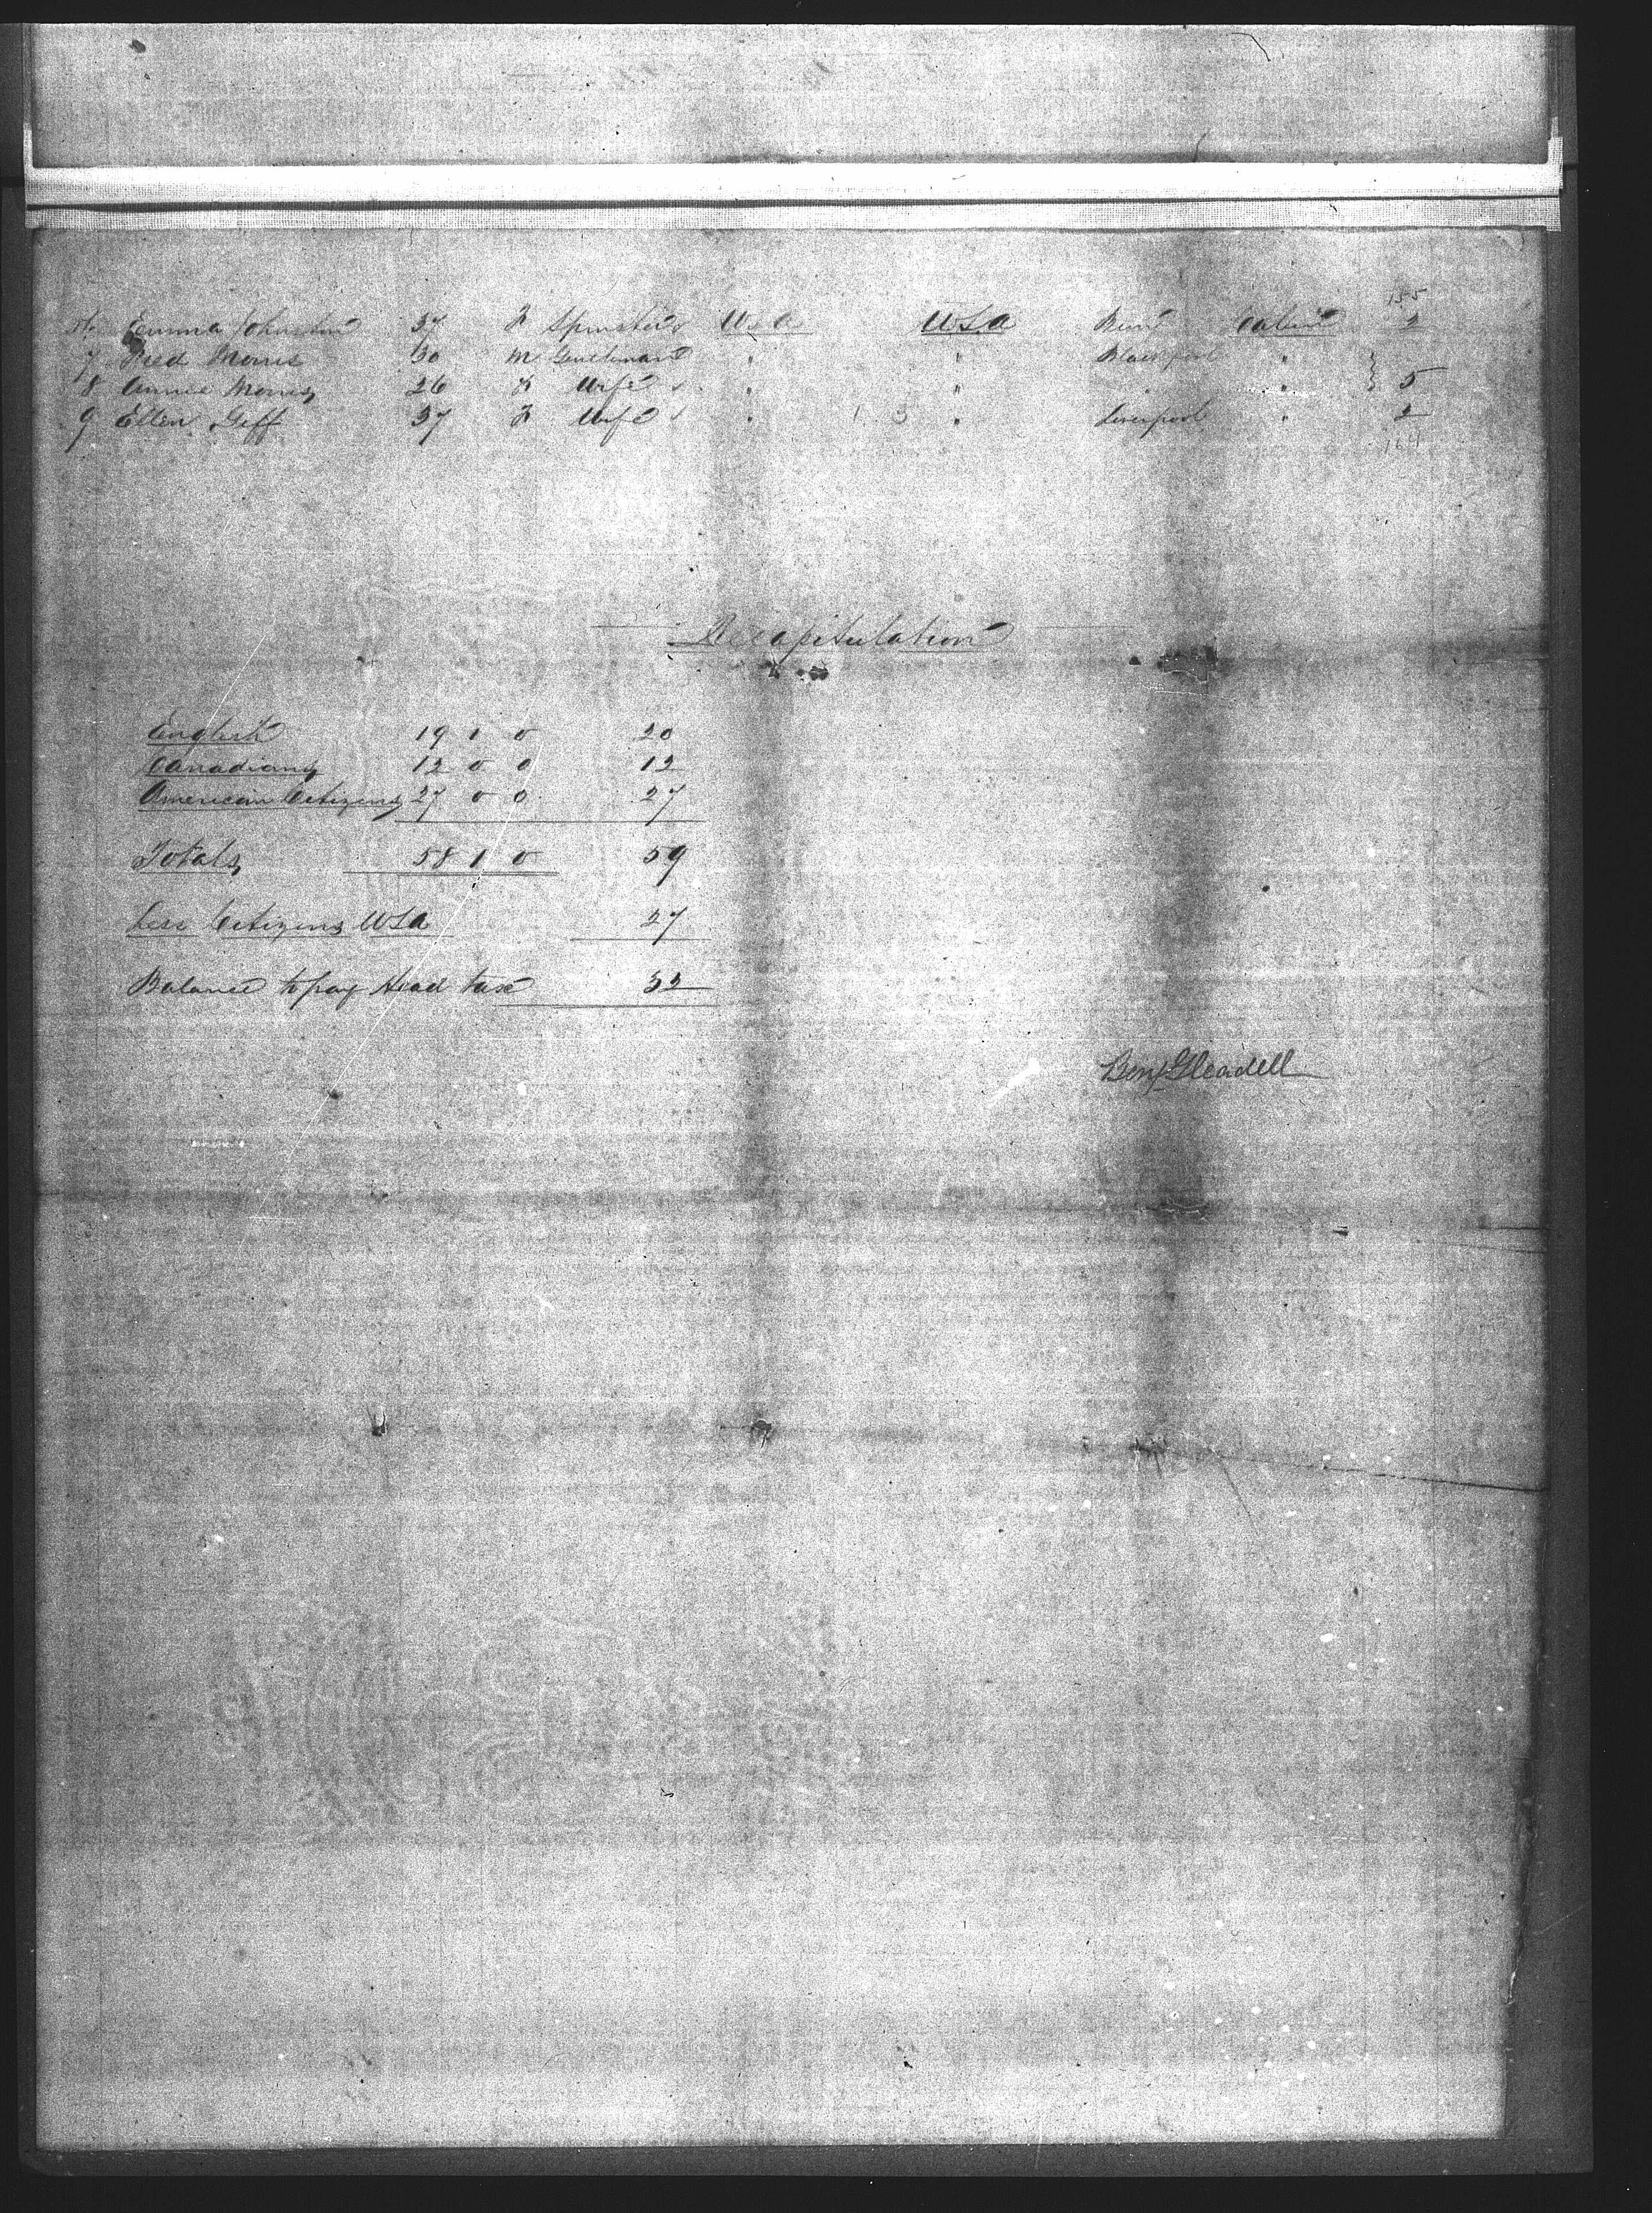 155
56 Emma Johnston 37 F Spinster U.S.A U.S.A Cabin 2
7 Fred Morris 30 M Gentleman " " Blackpool "
8 Annie Morris 26 F Wife " " " " } 5
9 Ellen Jeff 37 F Wife " 1 3 " Liverpool " 2
164
Recapitulation
English 19 1 0 20
Canadians 12 0 0 12
American Citizens 27 0 0 27
Totals 58 1 0 59
Less Citizens USA 27
Balance to pay Head tax 32
Benj Gleadell